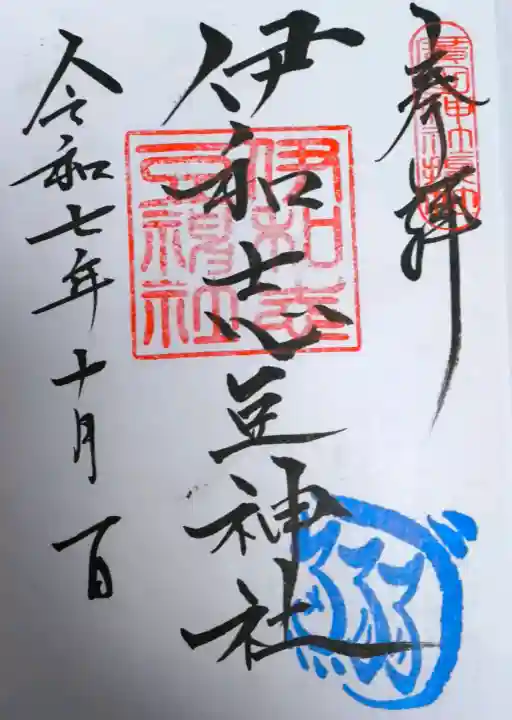 奉拝
伊和志豆神社
伊和志豆神社
令和七年十月一日
鰯